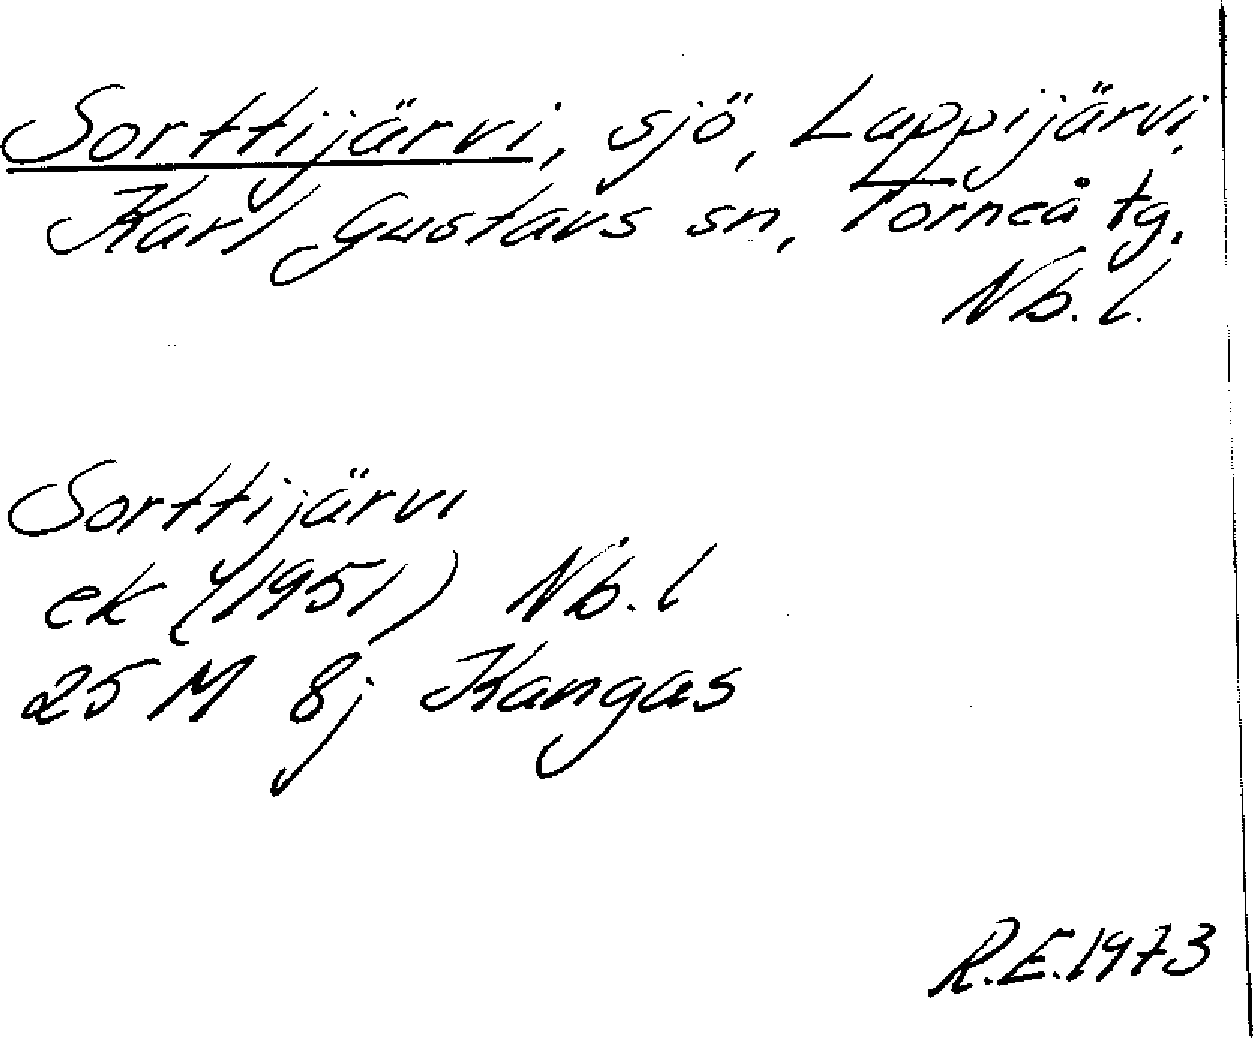 Sorttijärvi, sjö, Lappijärvi,
Karl Gustavs sn, Torneå tg,
Nb. l.
Sorttijärvi
ek (1951) Nb. l
25 M 8j Kangas
R.E. 1973